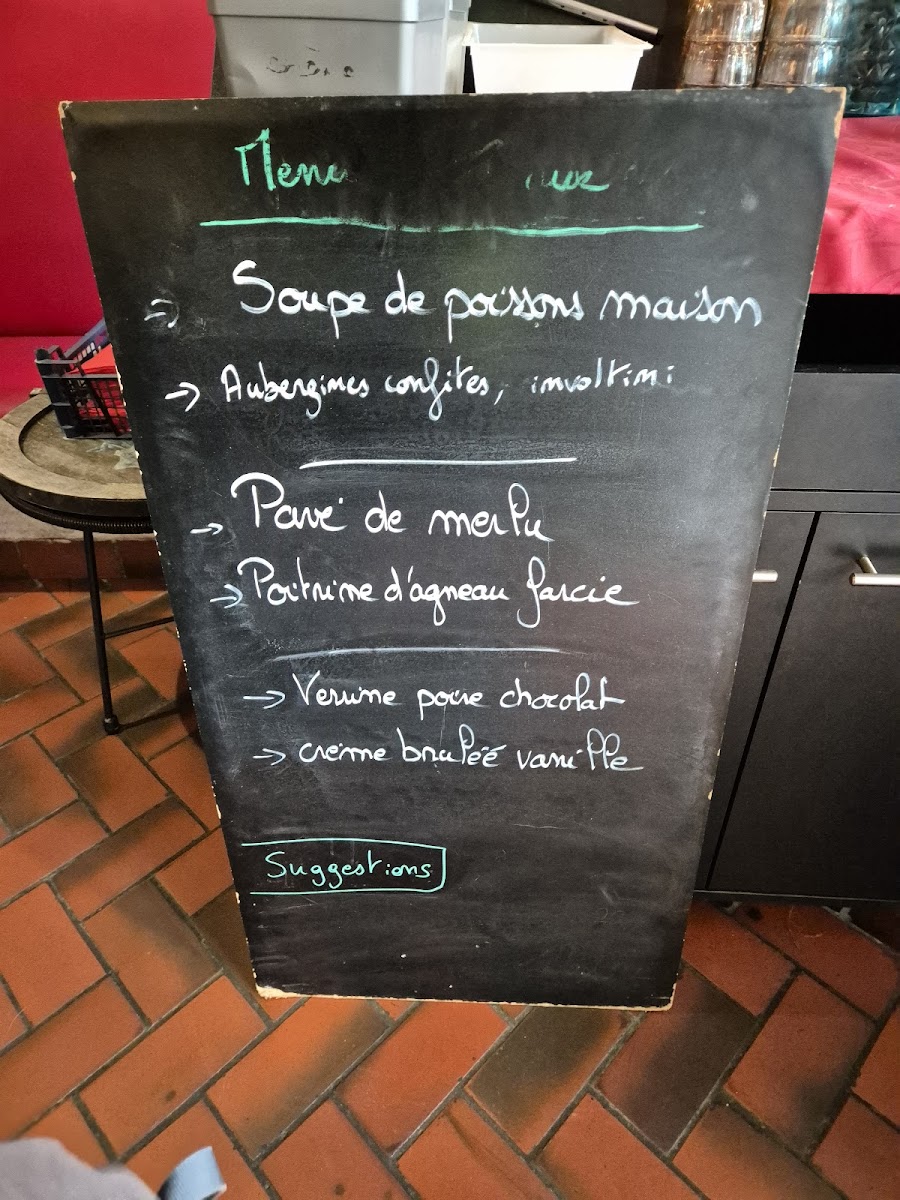 Menu
→ Soupe de poissons maison
→ Aubergines confites, involtini
→ Pavé de merlu
→ Poitrine d'agneau farcie
→ Verrine poire chocolat
→ crème bruléé vanille
Suggestions